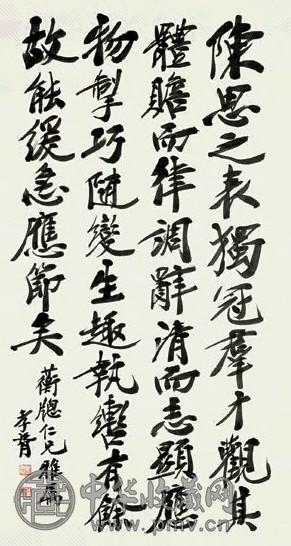 陳思之表獨冠羣才觀其
體贍而律調辭清而志顯應
物掣巧隨變生趣執轡有餘
故能緩急應節矣
蘅牕仁兄雅屬
孝胥
中华收藏网
www.pmv.cn